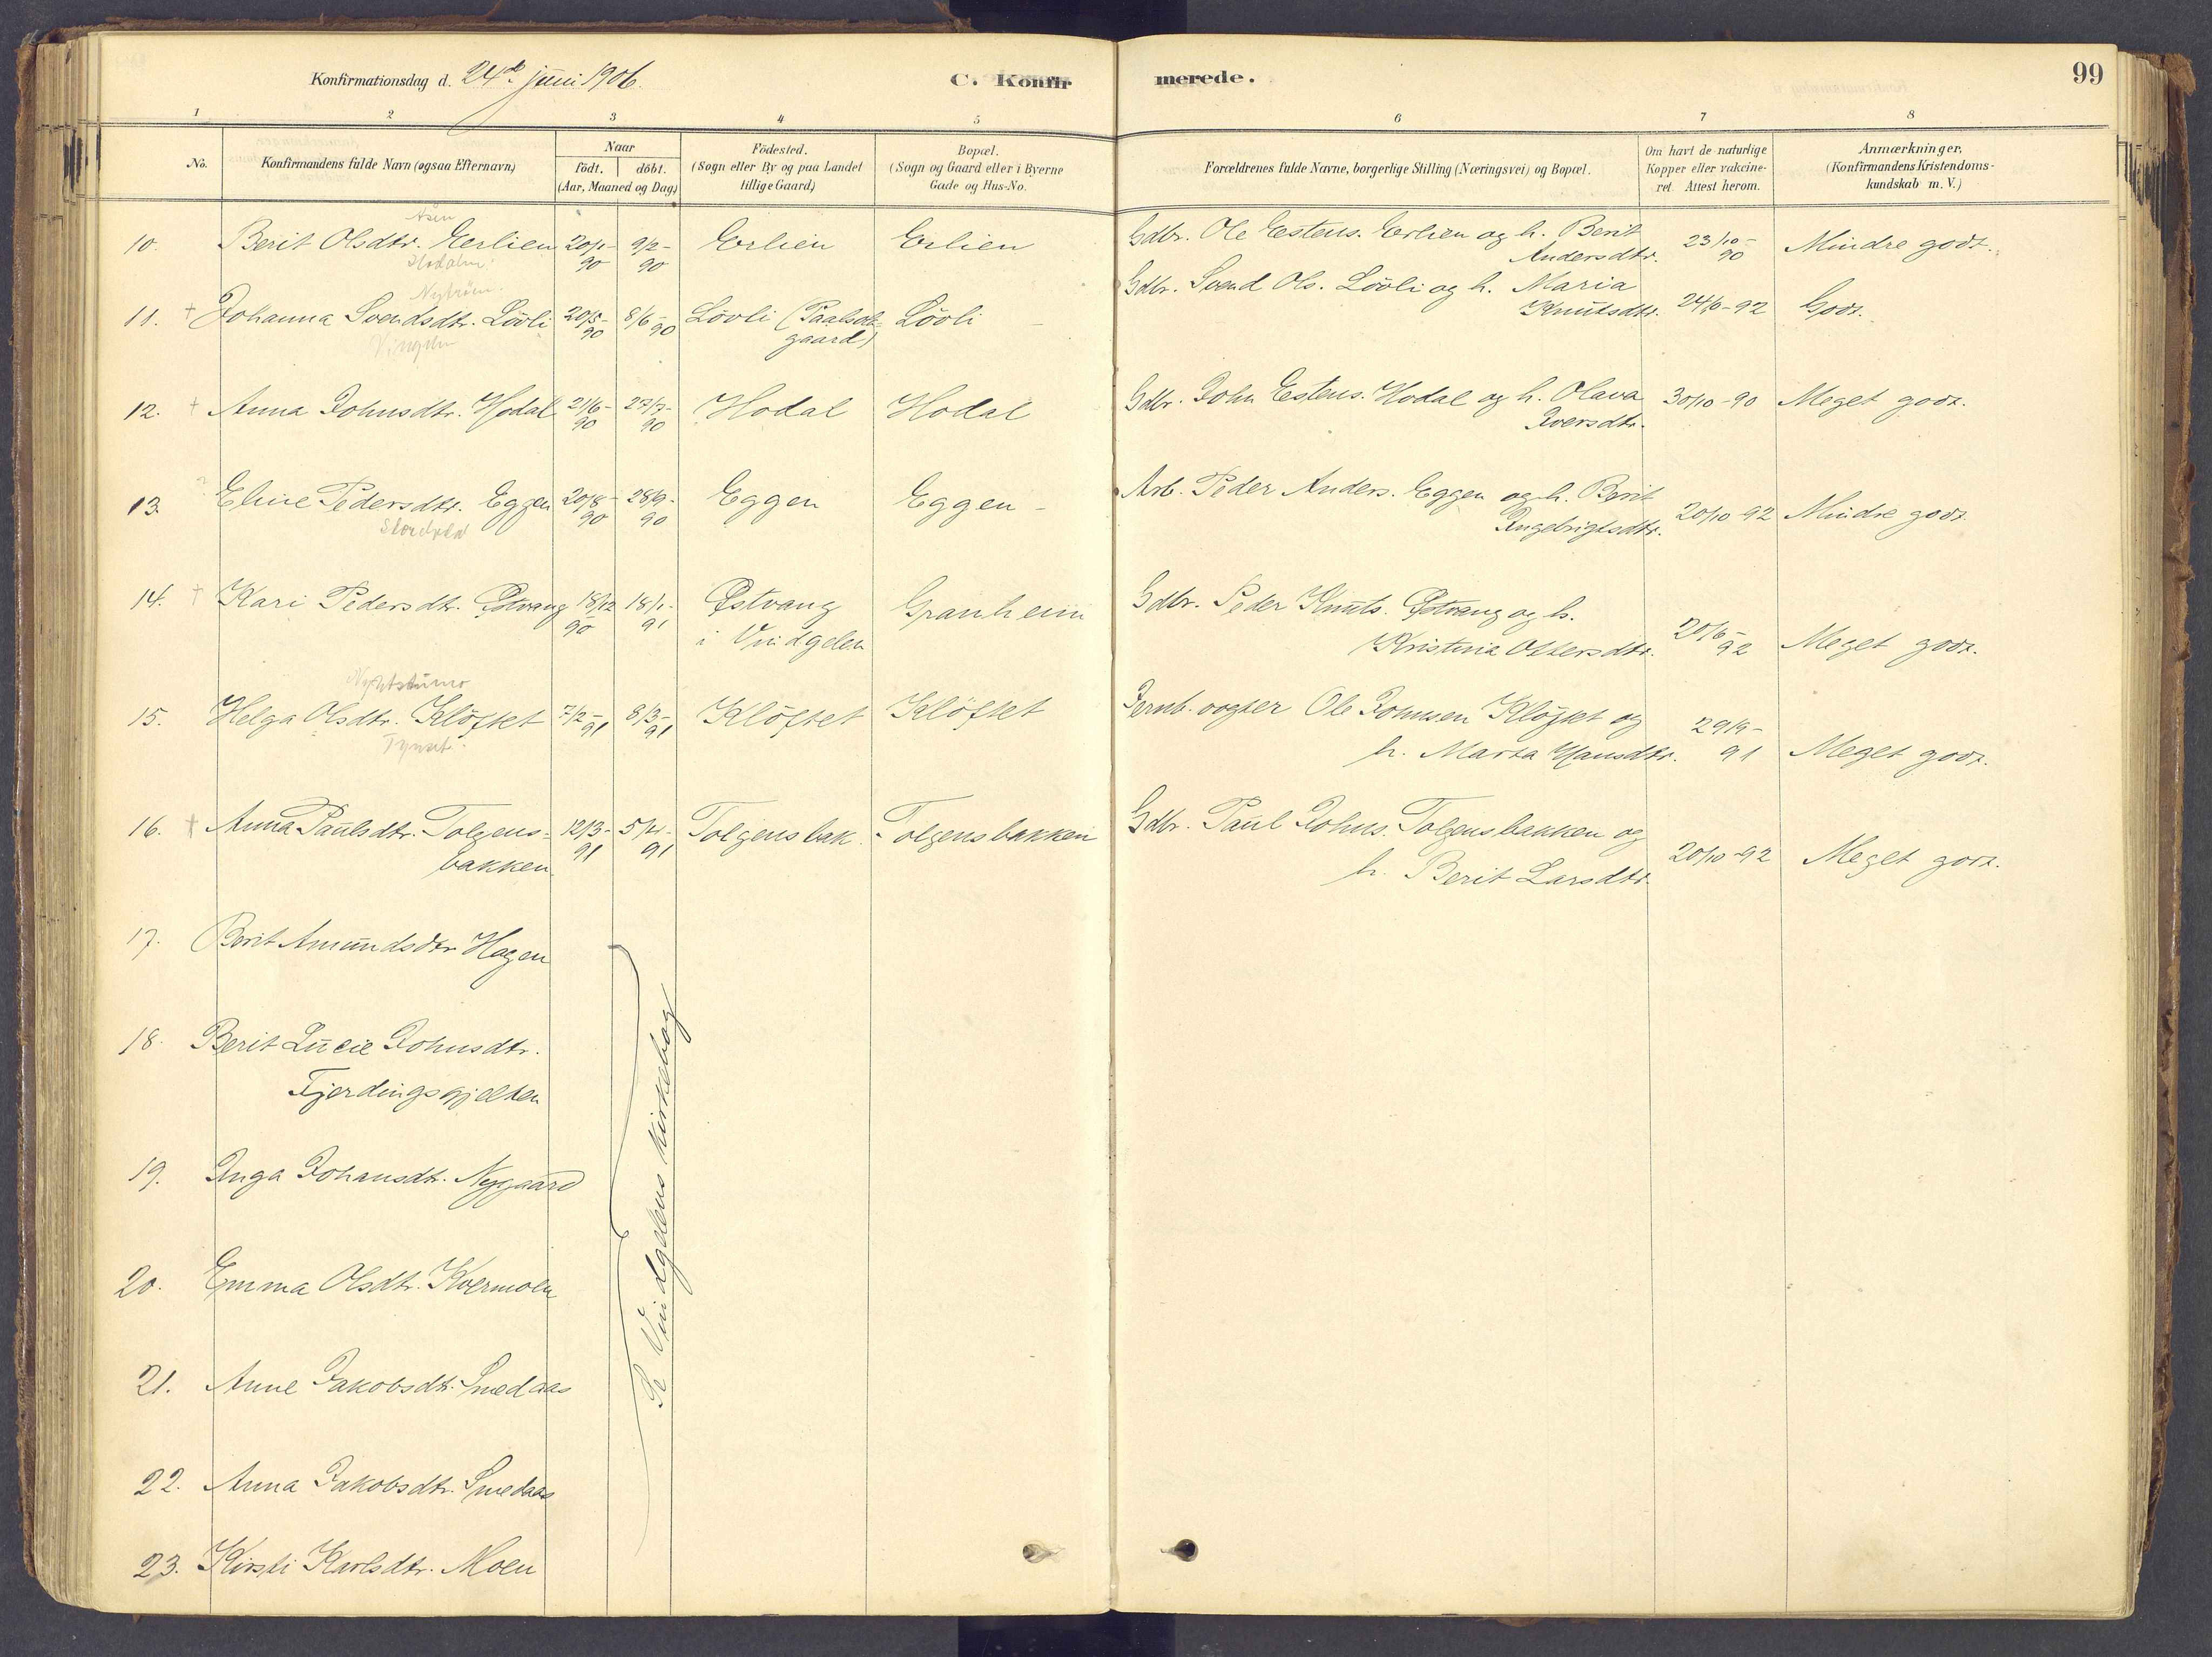 Konfirmationsdag d. 24de juni 1906.
C. Konfir
merede.
99
1 2 3 4 5 6 7 8
No.
Konfirmandens fulde Navn (ogsaa Efternavn)
Naar
födt. döbt.
(Aar, Maaned og Dag)
Födested.
(Sogn eller By og paa Landet
tillige Gaard)
Bopæl.
(Sogn og Gaard eller i Byerne
Gade og Hus-No.
Forældrenes fulde Navne, borgerlige Stilling (Næringsvei) og Bopæl.
Om havt de naturlige
Kopper eller vakcine-
ret. Attest herom.
Anmærkninger,
(Konfirmandens Kristendoms-
kundskab m. V.)
Åsen
10. Berit Olsdtr. Erlien 20/1-90 9/2-90 Erlien Erlien Gdbr. Ole Estens. Erlien og h. Berit
Andersdtr. 23/10-90 Mindre godt.
Hodalen
Nyströen
11. † Johanna Svendsdtr. Lövli 20/5-90 8/6-90 Lövli (Paalsok- Lövli - Gdbr. Svend Ols. Lövli og h. Maria
gaard) Knutsdtr. 24/6-92 Godt.
Vingelen
12. † Anna Johnsdtr. Hodal 21/6-90 27/7-90 Hodal Hodal Gdbr. John Estens. Hodal og h. Olava
Iversdtr. 30/10-90 Meget godt.
13. Eline Pedersdtr. Eggen 20/8-90 28/9-90 Eggen Eggen - Arb. Peder Anders. Eggen og h. Berit
Ingebrigtsdtr. 20/10-92 Mindre godt.
14. † Kari Pedersdtr. Østvang 18/12 90 18/1-91 Østvang Granheim Gdbr. Peder Knuts. Østvang og h.
i Vindgelen Kristine Ottersdtr. 20/6-92 Meget godt.
15. Helga Olsdtr. Klöftet 7/2-91 8/3-91 Klöftet Klöftet Jernb. vogter Ole Johnsen Klöftet og
h. Marta Hansdtr. 29/9-91 Meget godt.
Tynset.
16. † Anna Paulsdtr. Tolgens- 12/3-91 5/4-91 Tolgensbak. Tolgensbakken Gdbr. Paul Johns. Tolgensbakken og
bakken h. Berit Larsdtr. 20/10-92 Meget godt.
17. Berit Amundsdtr Hagen
18. Berit Lucie Johnsdtr.
Fjerdingsgjelten
19. Inga Johansdtr. Nygaard
20. Emma Olsdtr. Kvermoen
21. Anne Jakobsdtr. Smedaas
22. Anna Jakobsdtr. Smedaas
23. Kirsti Karlsdtr. Moen
Se Vindgelens kirkebog